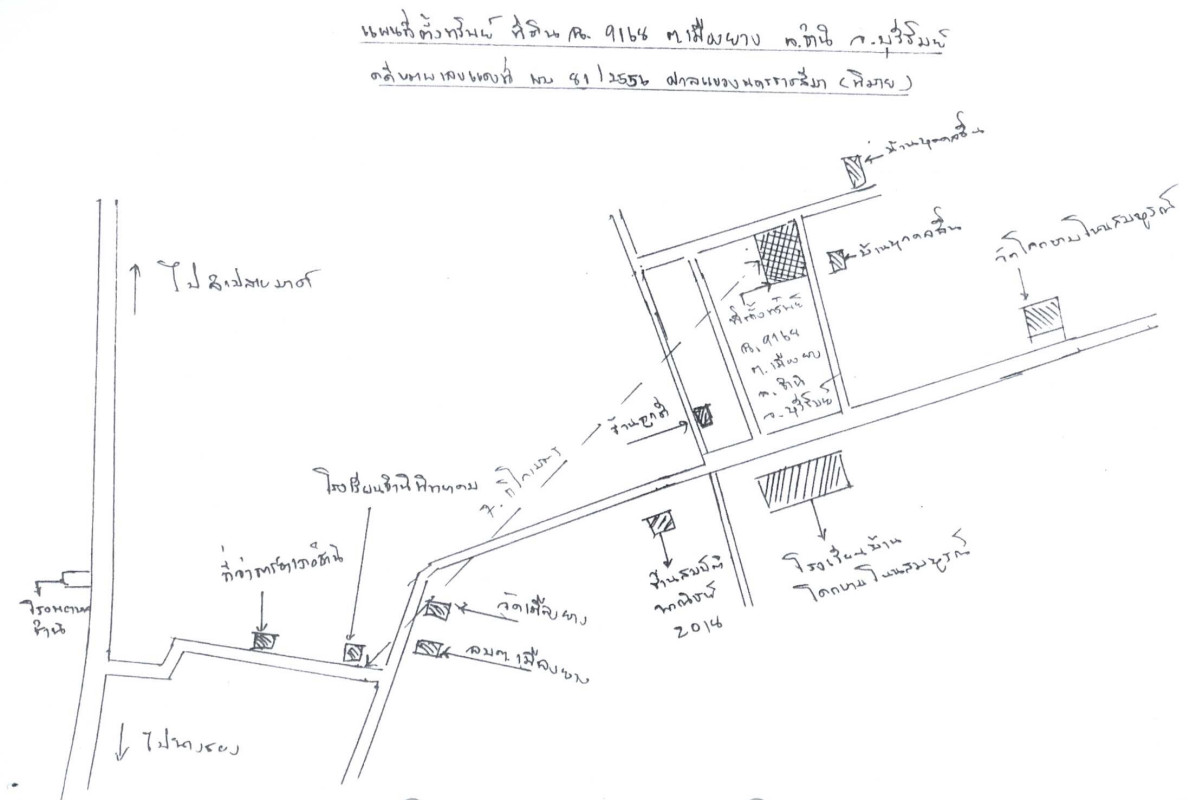 แผนที่ตั้งทรัพย์ ที่ดิน ฉ. 9168 ต.เมืองยาง อ.ชำนิ จ.บุรีรัมย์
คดีหมายเลขแดงที่ ผบ 81/2556 ศาลแขวงนครราชสีมา (พิมาย)
บ้านบุคคลอื่น
บ้านบุคคลอื่น
วัดโคกขามโนนสมบูรณ์
ไปลำปลายมาศ
ที่ตั้งทรัพย์
ฉ. 9168
ต.เมืองยาง
อ.ชำนิ
จ.บุรีรัมย์
กิโลเมตร
โรงเรียนชำนิพิทยาคม
ที่ว่าการอำเภอชำนิ
โรงพยาบาล
ชำนิ
วัดเมืองยาง
อบต.เมืองยาง
ร้านสมบัติ
พาณิชย์
2018
โรงเรียนบ้าน
โคกขามโนนสมบูรณ์
ไปนางรอง